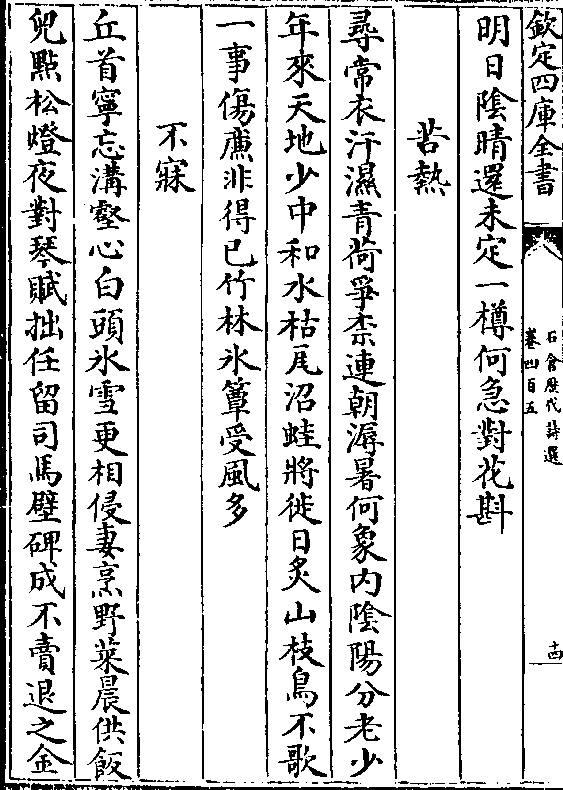 欽定四庫全書
石倉歷代詩選
卷四百五
十四
明日陰晴還未定一樽何急對花斟
苦熱
尋常衣汗濕青荷爭柰連朝溽暑何象内陰陽分老少
年來天地少中和水枯瓦沼蛙將徙日炙山枝鳥不歌
一事傷廉非得已竹林氷簟受風多
不寐
丘首寧忘溝壑心白頭氷雪更相侵妻烹野菜晨供飯
兒點松燈夜對琴賦拙任留司馬壁碑成不賣退之金